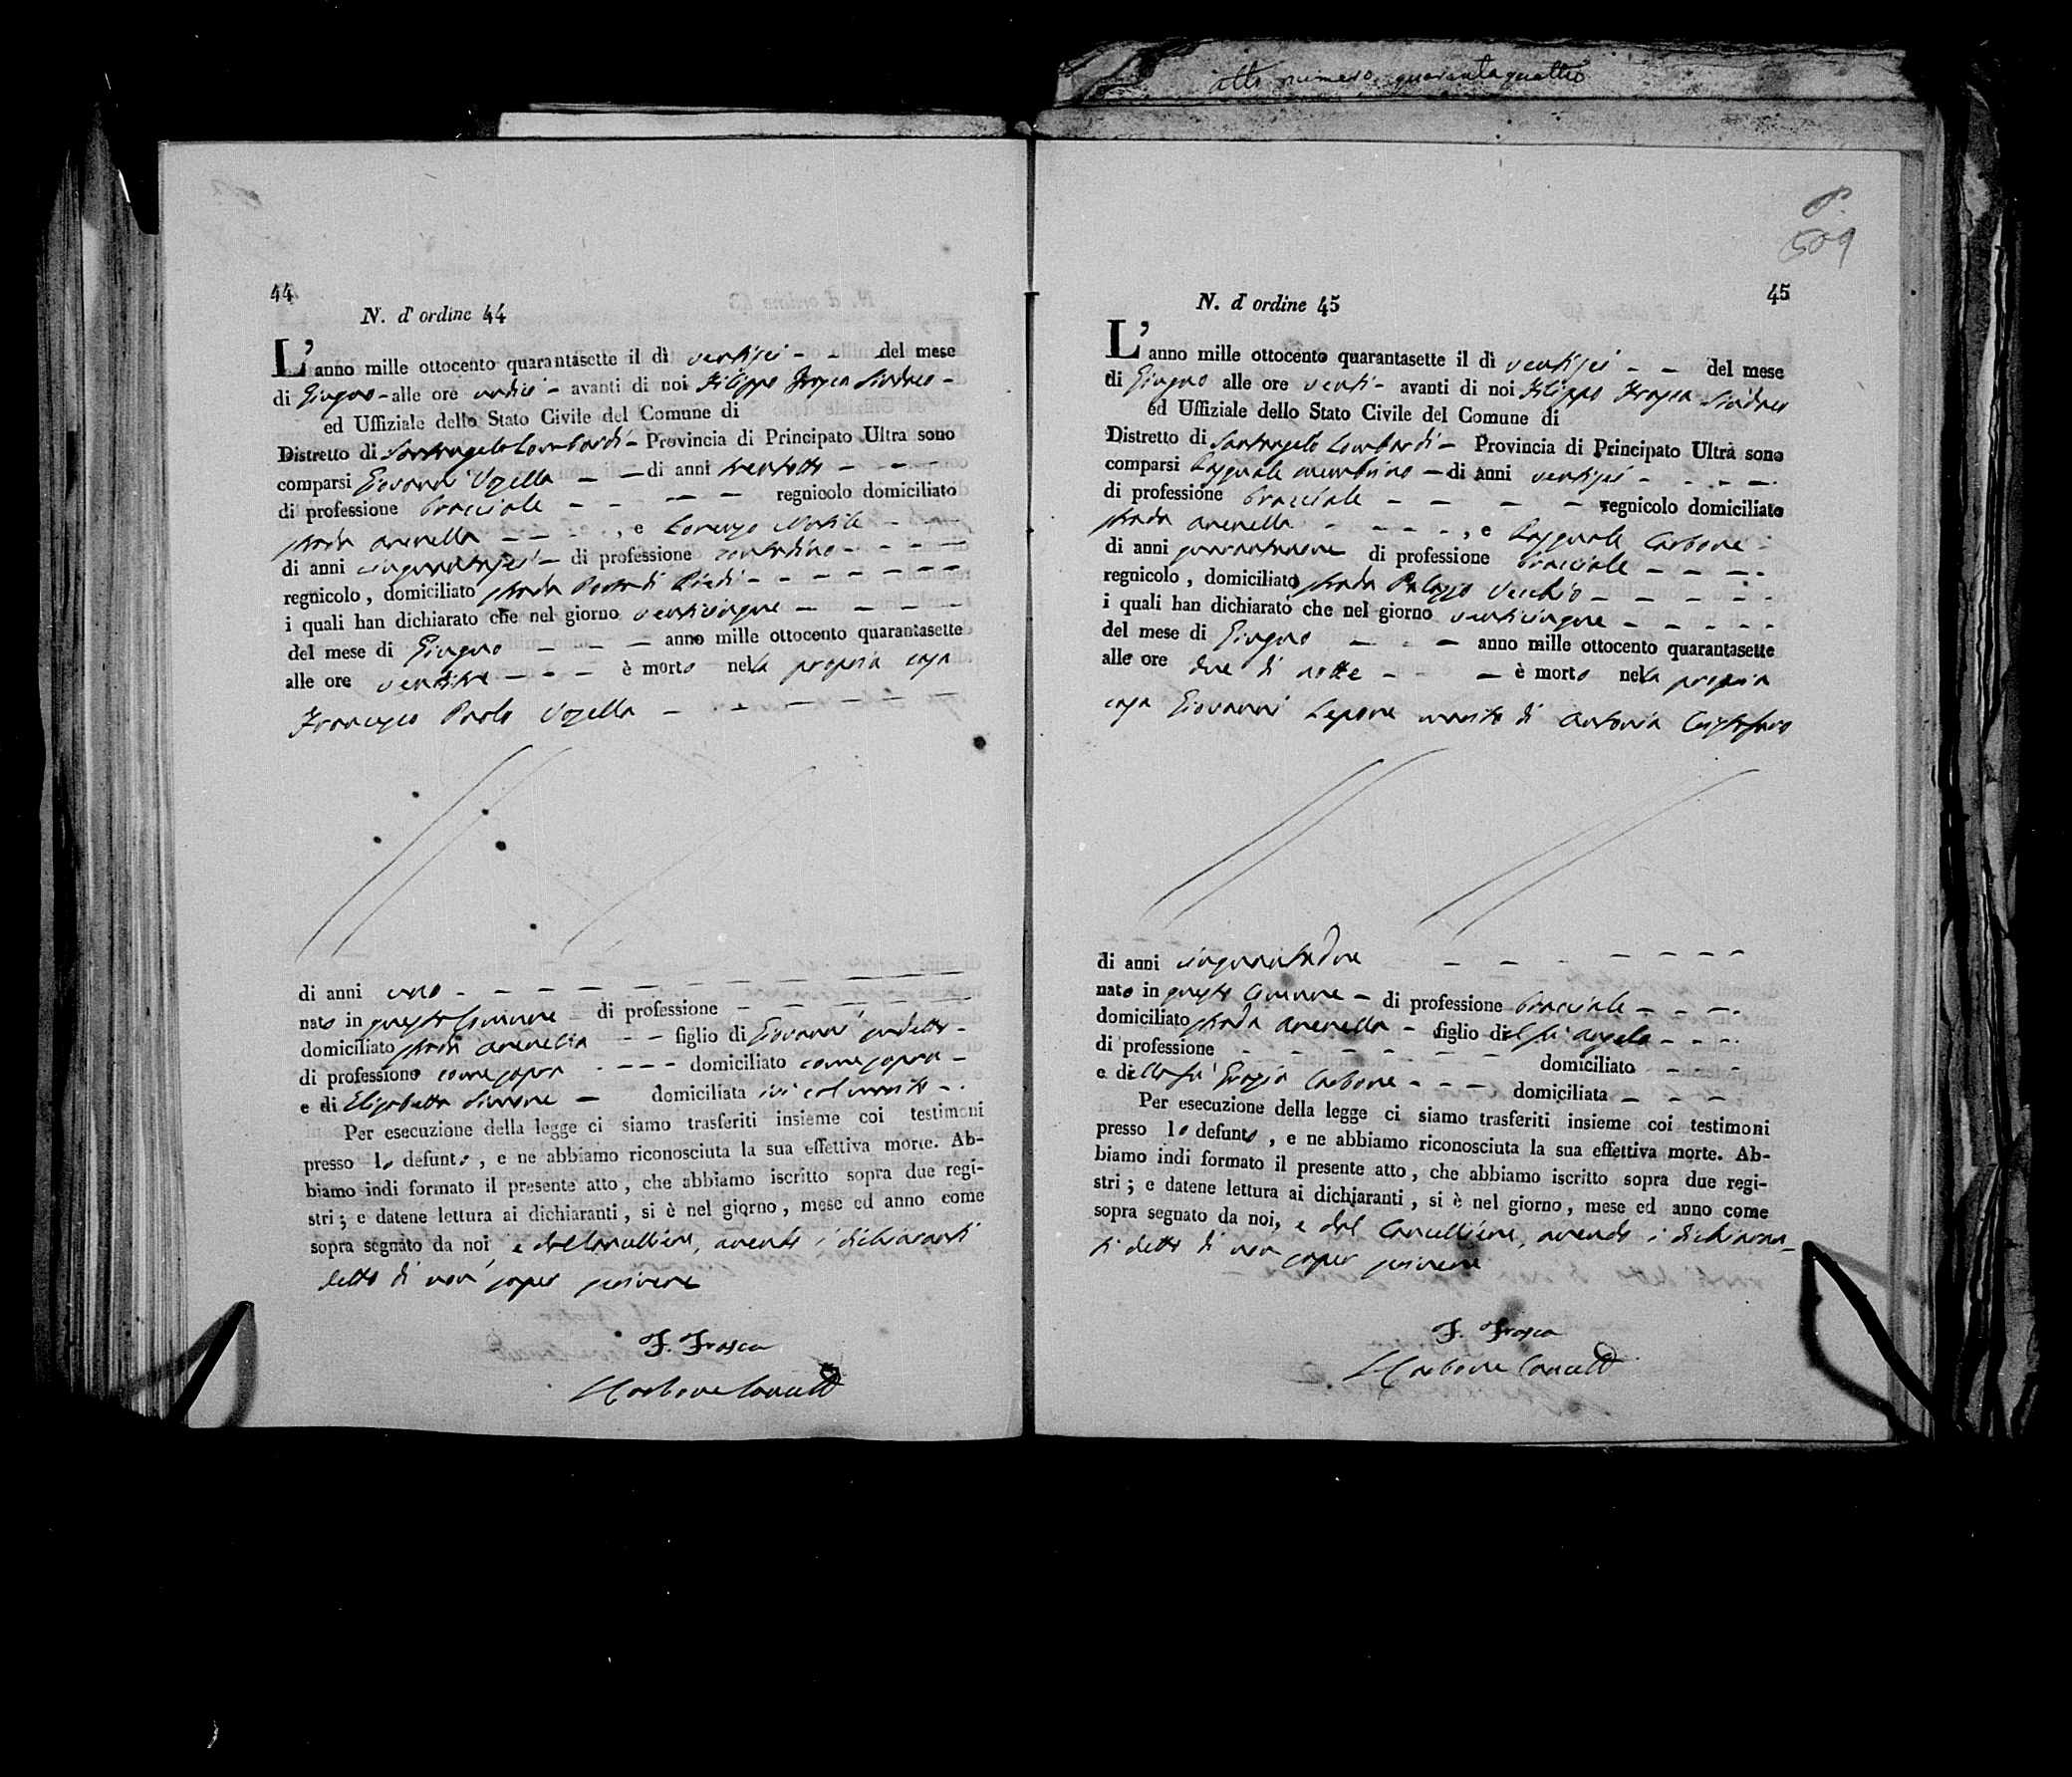 atto numero quarantaquattro
44
N. d' ordine 44
L'anno mille ottocento quarantasette il dì ventisei - - del mese
di Giugno - alle ore undici - avanti di noi Filippo Frasca Sindaco -
ed Uffiziale dello Stato Civile del Comune di
Distretto di Santangelo Lombardi - Provincia di Principato Ultra sono
comparsi Giovanni Vozella - - di anni trentotto - - -
di professione bracciale - - - - regnicolo domiciliato
strada Arenella - - - - , e Lorenzo - - -
di anni cinquantasei - di professione contadino - - - -
regnicolo , domiciliato strada Porta di Piedi - - - - - - -
i quali han dichiarato che nel giorno venticinque - - - -
del mese di Giugno - - - anno mille ottocento quarantasette
alle ore ventitre - - - è morto nella propria casa
Francesco Paolo Vozella - - - - - -
di anni uno - - - - - - - - - - - -
nato in questo Comune di professione - - - - - - -
domiciliato strada Arenella - - figlio di Giovanni sudetto -
di professione come sopra - - - - domiciliato come sopra -
e di Elisabetta Simone - domiciliata ivi col marito - .
Per esecuzione della legge ci siamo trasferiti insieme coi testimoni
presso lo defunto , e ne abbiamo riconosciuta la sua effettiva morte. Ab-
biamo indi formato il presente atto , che abbiamo iscritto sopra due regi-
stri ; e datene lettura ai dichiaranti , si è nel giorno , mese ed anno come
sopra segnato da noi e dal Cancelliere, avendo i dichiaranti
detto di non saper scrivere
F. Frasca
Carbone Cancell
509
45
N. d' ordine 45
L'anno mille ottocento quarantasette il dì ventisei - - del mese
di Giugno alle ore venti - avanti di noi Filippo Frasca Sindaco
ed Uffiziale dello Stato Civile del Comune di
Distretto di Santangelo Lombardi - Provincia di Principato Ultra sono
comparsi Pasquale - di anni ventisei - - - - -
di professione bracciale - - - - regnicolo domiciliato
strada Arenella - - - - - , e Pasquale Carbone -
di anni quarantanove di professione bracciale - - - -
regnicolo , domiciliato strada Palazzo Vecchio - - - - -
i quali han dichiarato che nel giorno venticinque - - - - -
del mese di Giugno - - - anno mille ottocento quarantasette
alle ore due di notte - - - è morto nella propria
casa Giovanni Lepore marito di Antonia Cristofaro
di anni cinquantadue - - - - - - - -
nato in questo Comune - di professione bracciale - - - -
domiciliato strada Arenella - figlio del fu Angelo - - - -
di professione - - - - - - domiciliato - - -
e della fu Grazia Carbone - - - domiciliata - - -
Per esecuzione della legge ci siamo trasferiti insieme coi testimoni
presso lo defunto , e ne abbiamo riconosciuta la sua effettiva morte. Ab-
biamo indi formato il presente atto , che abbiamo iscritto sopra due regi-
stri ; e datene lettura ai dichiaranti , si è nel giorno , mese ed anno come
sopra segnato da noi, e dal Cancelliere, avendo i dichiaran-
ti detto di non saper scrivere
F. Frasca
Carbone Cancell